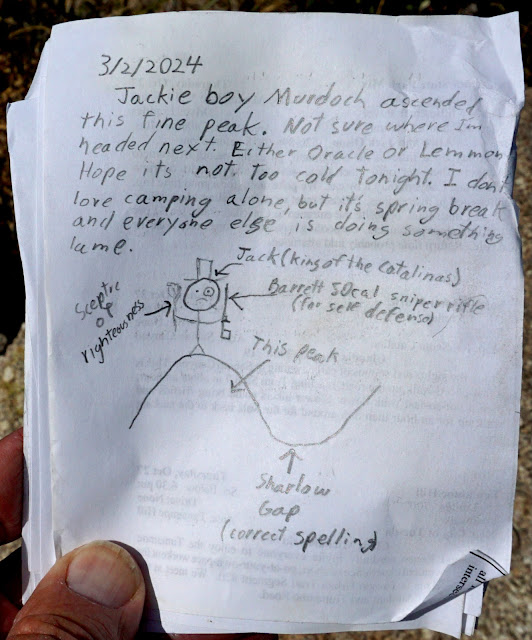 3/2/2024
Jackie boy Murdoch ascended
this fine peak. Not sure where I'm
headed next. Either Oracle or Lemmon
Hope its not too cold tonight. I don't
love camping alone, but it's spring break
and everyone else is doing something
lame.
Jack (king of the Catalinas)
Sceptre
of
righteousness
Barrett 50cal sniper rifle
(for self defense)
This peak
Sharlow
Gap
(correct spelling)
all
interse